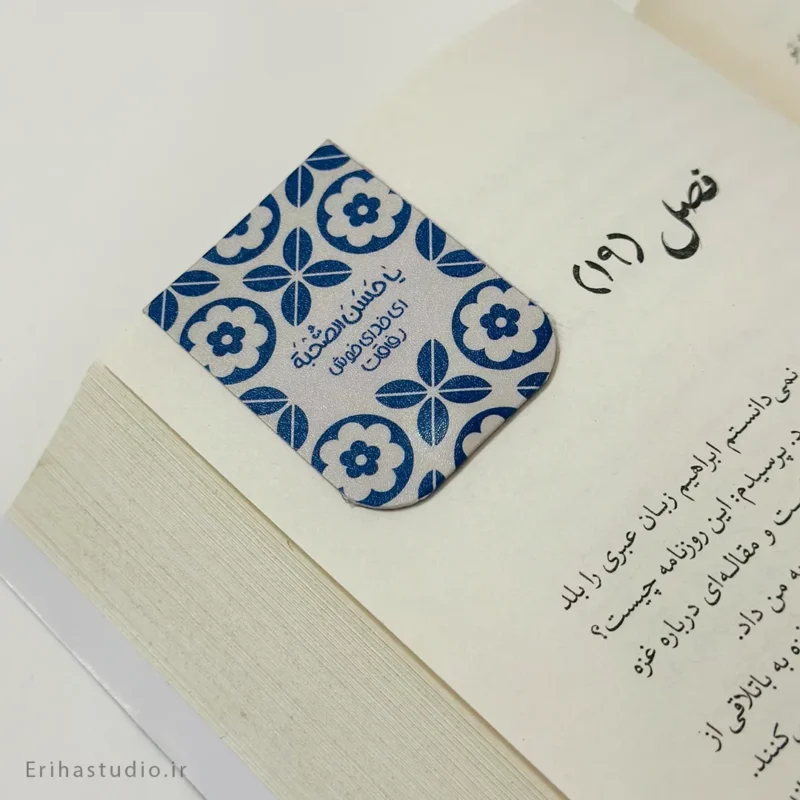 یا حَسَنَ الصُّحْبَة
ای خدای خوش
رفاقت
فصل (۱۹)
نمی دانستم ابراهیم زبان عبری را بلد
پرسیدم: این روزنامه چیست؟
و مقاله‌ای درباره غزه
به من داد.
به باتلاقی از
کنند.
Erihastudio.ir